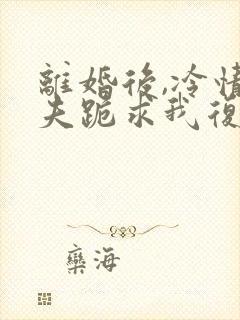 離婚後,冷情
夫跪求我復
欒海